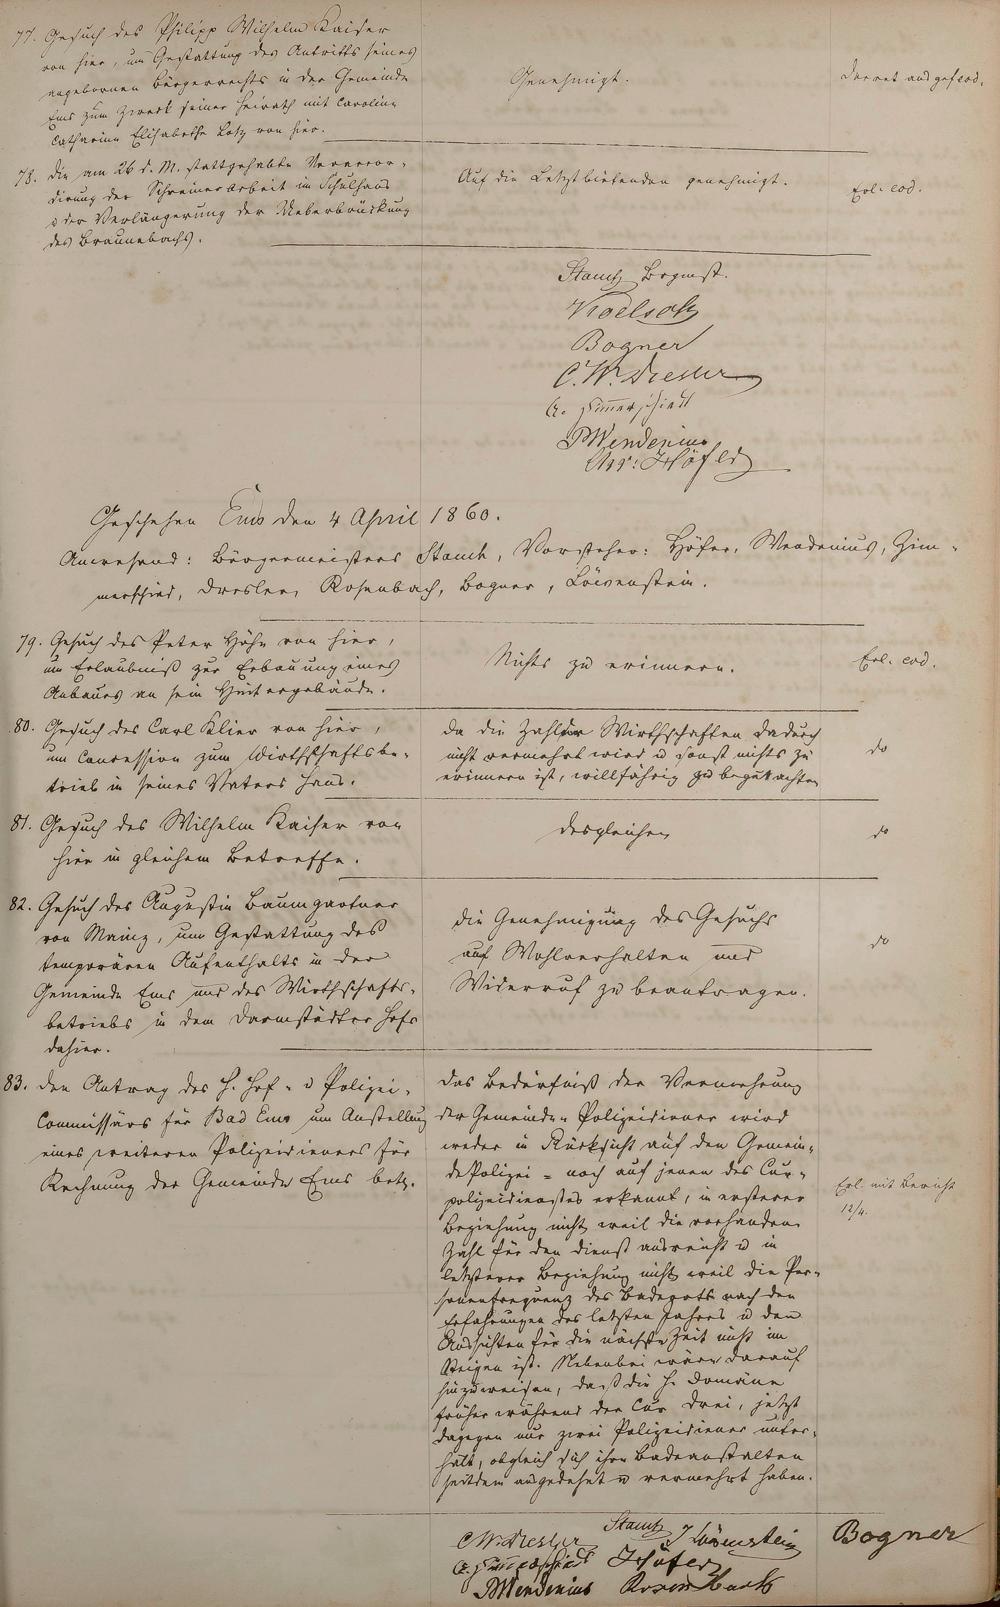 77. Gesuch des Philipp Wilhelm Kaiser
von hier, um Gestattung des Antritts seines
angebornen Bürgerrechts in der Gemeinde
Ems zum Zweck seiner Heirath mit Caroline
Catharina Elisabetha Lotz von hier.
Genehmigt.
Decret ausgef. eod.
78. Die am 26 d. M. stattgehabte Veraccor-
dirung der Schreinerarbeit im Schulhaus
u der Verlängerung der Ueberbrückung
des Braunebachs.
Auf die Letztbietenden genehmigt.
Erl. eod.
Stamh Bgmst.
Bogner
C. W. Dresler
C. Zimmerschied
PWendenius
Chr: Höfer
Geschehen Ems den 4 April 1860.
Anwesend: Bürgermeister Stamh, Vorsteher: Höfer, Wendenius, Zim-
merschied, Dresler, Rosenbach, Bogner, Löwenstein.
79. Gesuch des Peter Höhn von hier,
um Erlaubniß zur Erbauung eines
Anbaues an sein Hintergebäude.
Nichts zu erinnern.
Erl. eod.
80. Gesuch des Carl Klier von hier,
um Concession zum Wirthschaftsbe-
trieb in seines Vaters Haus.
Da die Zahl der Wirthschaften dadurch
nicht vermehrt wird u sonst nichts zu
erinnern ist, willfährig zu begutachten
do
81. Gesuch des Wilhelm Kaiser von
hier in gleichem Betreffe.
Desgleichen
do
82. Gesuch des Augustin Baumgartner
von Mainz, um Gestattung des
temporären Aufenthalts in der
Gemeinde Ems und des Wirthschafts-
betriebs in dem Darmstädter Hofe
dahier.
Die Genehmigung des Gesuchs
auf Wohlverhalten und
Widerruf zu beantragen.
do
83. Den Antrag des H. Hof- u Polizei-
Commissärs für Bad Ems um Anstellung
eines weiteren Polizeidieners für
Rechnung der Gemeinde Ems betr.
Das Bedürfniß der Vermehrung
der Gemeinde-Polizeidiener wird
weder in Rücksicht auf den Gemein-
dePolizei- noch auf jenen des Cur-
polizeidienstes erkannt, in ersterer
Beziehung nicht, weil die vorhandene
Zahl für den Dienst ausreicht u in
letzterer Beziehung nicht weil die Per-
sonenfrequenz des Badeorts nach den
Erfahrungen des letzten Jahres u den
Aussichten für die nächste Zeit nicht im
Steigen ist. Nebenbei wäre darauf
hinzuweisen, daß die H. Domäne
früher während der Cur drei, jetzt
dagegen nur zwei Polizeidiener unter-
hält, obgleich sich ihre Badeanstalten
seitdem ausgedehnt u vermehrt haben.
Erl. mit Bericht
12/4.
CWDresler Stamh J Löwenstein Bogner
C. Zimmerschied Höfer
PWendenius Rosenbach